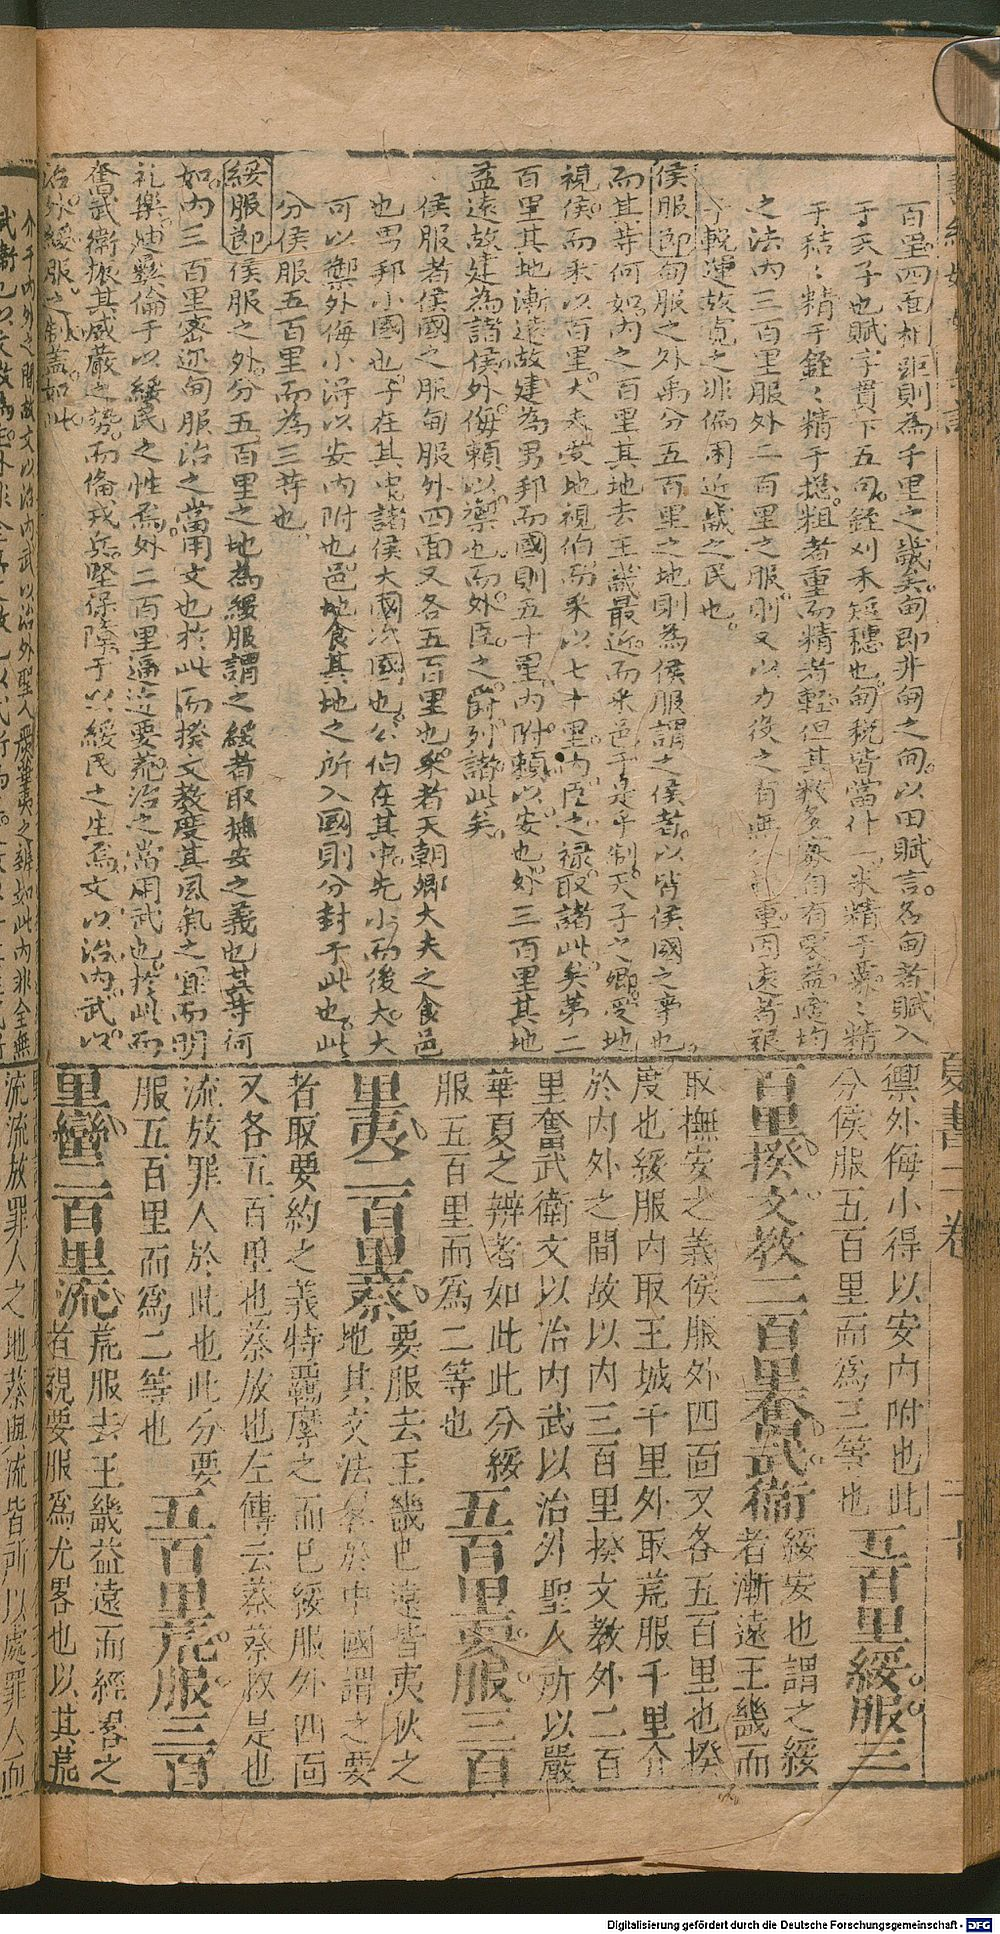 百里四面相距則為千里之畿矣甸即井甸之甸以田賦言名甸者賦入
于天子也賦字貫下五句銍刈禾短穗也甸稅皆當什一米精于粟粟精
于秸秸精于銍銍精于緫粗者重而精者輕但其數多寡自有裒益處均
之法內三百里服外二百里之服則又以力役之有無
于輓運故寬之非偏困近畿之民也
侯服節甸服之外禹分五百里之地則為侯服謂之侯者以皆侯國之事也
而其等何如內之百里其地去王畿最近而采邑于是乎制天子之卿受地
視侯而采以百里大夫受地視伯而采以七十里內臣之祿取諸此矣第二
百里其地漸遠故建為男邦而國則五十里內附賴以安也外三百里其地
益遠故建為諸侯外侮賴以禦也而外臣之爵列諸此矣
侯服者侯國之服甸服外四面又各五百里也采者天朝卿大夫之食邑
也男邦小國也子在其中諸侯大國次國也公伯在其中先小而後大大
可以禦外侮小得以安內附也邑地食其地之所入國則分封于此也此
分侯服五百里而為三等也
綏服節侯服之外分五百里之地為綏服謂之綏者取撫安之義也其等何
如內三百里密迩甸服治之當用文也於此而揆文教度其風氣之宜而明
礼樂迪彞倫于以綏民之性焉外二百里逼近要荒治之當用武也於此而
奮武衛振其威嚴之勢而倫戎兵堅保障于以綏民之生焉文以治內武以
治外綏服之制盖如此
介于內外之間故文以治內武以治外聖人嚴華夷之辨如此內非全無
夏書二卷
禦外侮小得以安內附也此
分侯服五百里而為三等也 五百里綏服三
綏安也謂之綏
者漸遠王畿而
百里揆文教二百里奮武衛
取撫安之義侯服外四面又各五百里也揆
度也綏服內取王城千里外取荒服千里介
於內外之間故以內三百里揆文教外二百
里奮武衛文以治內武以治外聖人所以嚴
華夏之辨者如此此分綏
服五百里而為二等也 五百里要服三百
里夷二百里蔡
要服去王畿已遠皆夷狄之
地其文法畧於中國謂之要
者取要約之義特羈縻之而已綏服外四面
又各五百里也蔡放也左傳云蔡蔡叔是也
流放罪人於此也此分要
服五百里而為二等也 五百里荒服三百
里蠻二百里流
荒服去王畿益遠而經畧之
者視要服為尤畧也以其荒
流流放罪人之地蔡與流皆所以處罪人而
Digitalisierung gefördert durch die Deutsche Forschungsgemeinschaft - DFG